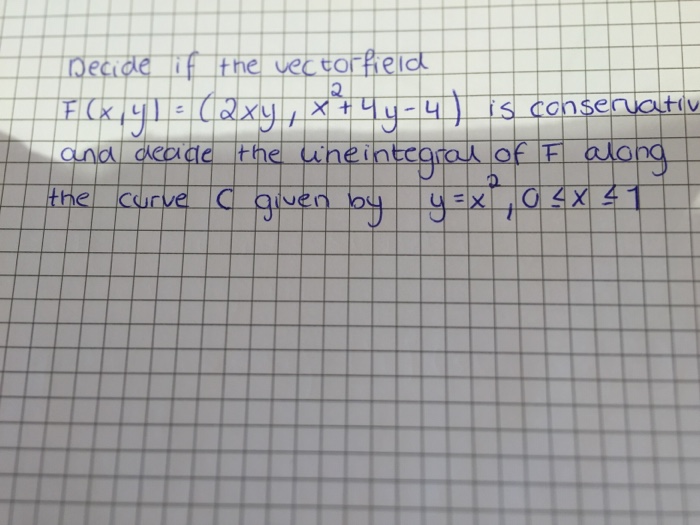 Decide if the vectorfield
F(x,y) = (2xy, x²+4y-4) is conservativ
and decide the lineintegral of F along
the curve C given by y=x², 0≤x≤1